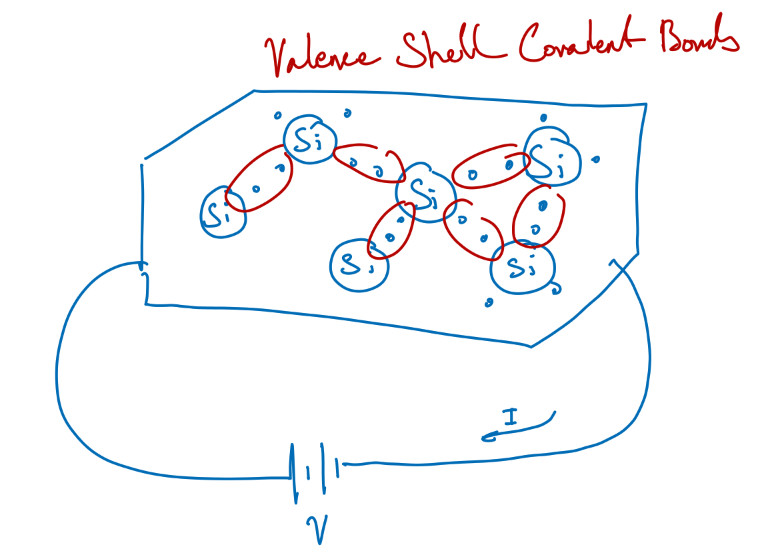 Valence Shell Covalent Bonds
Si
Si
Si
Si
Si
Si
I
V